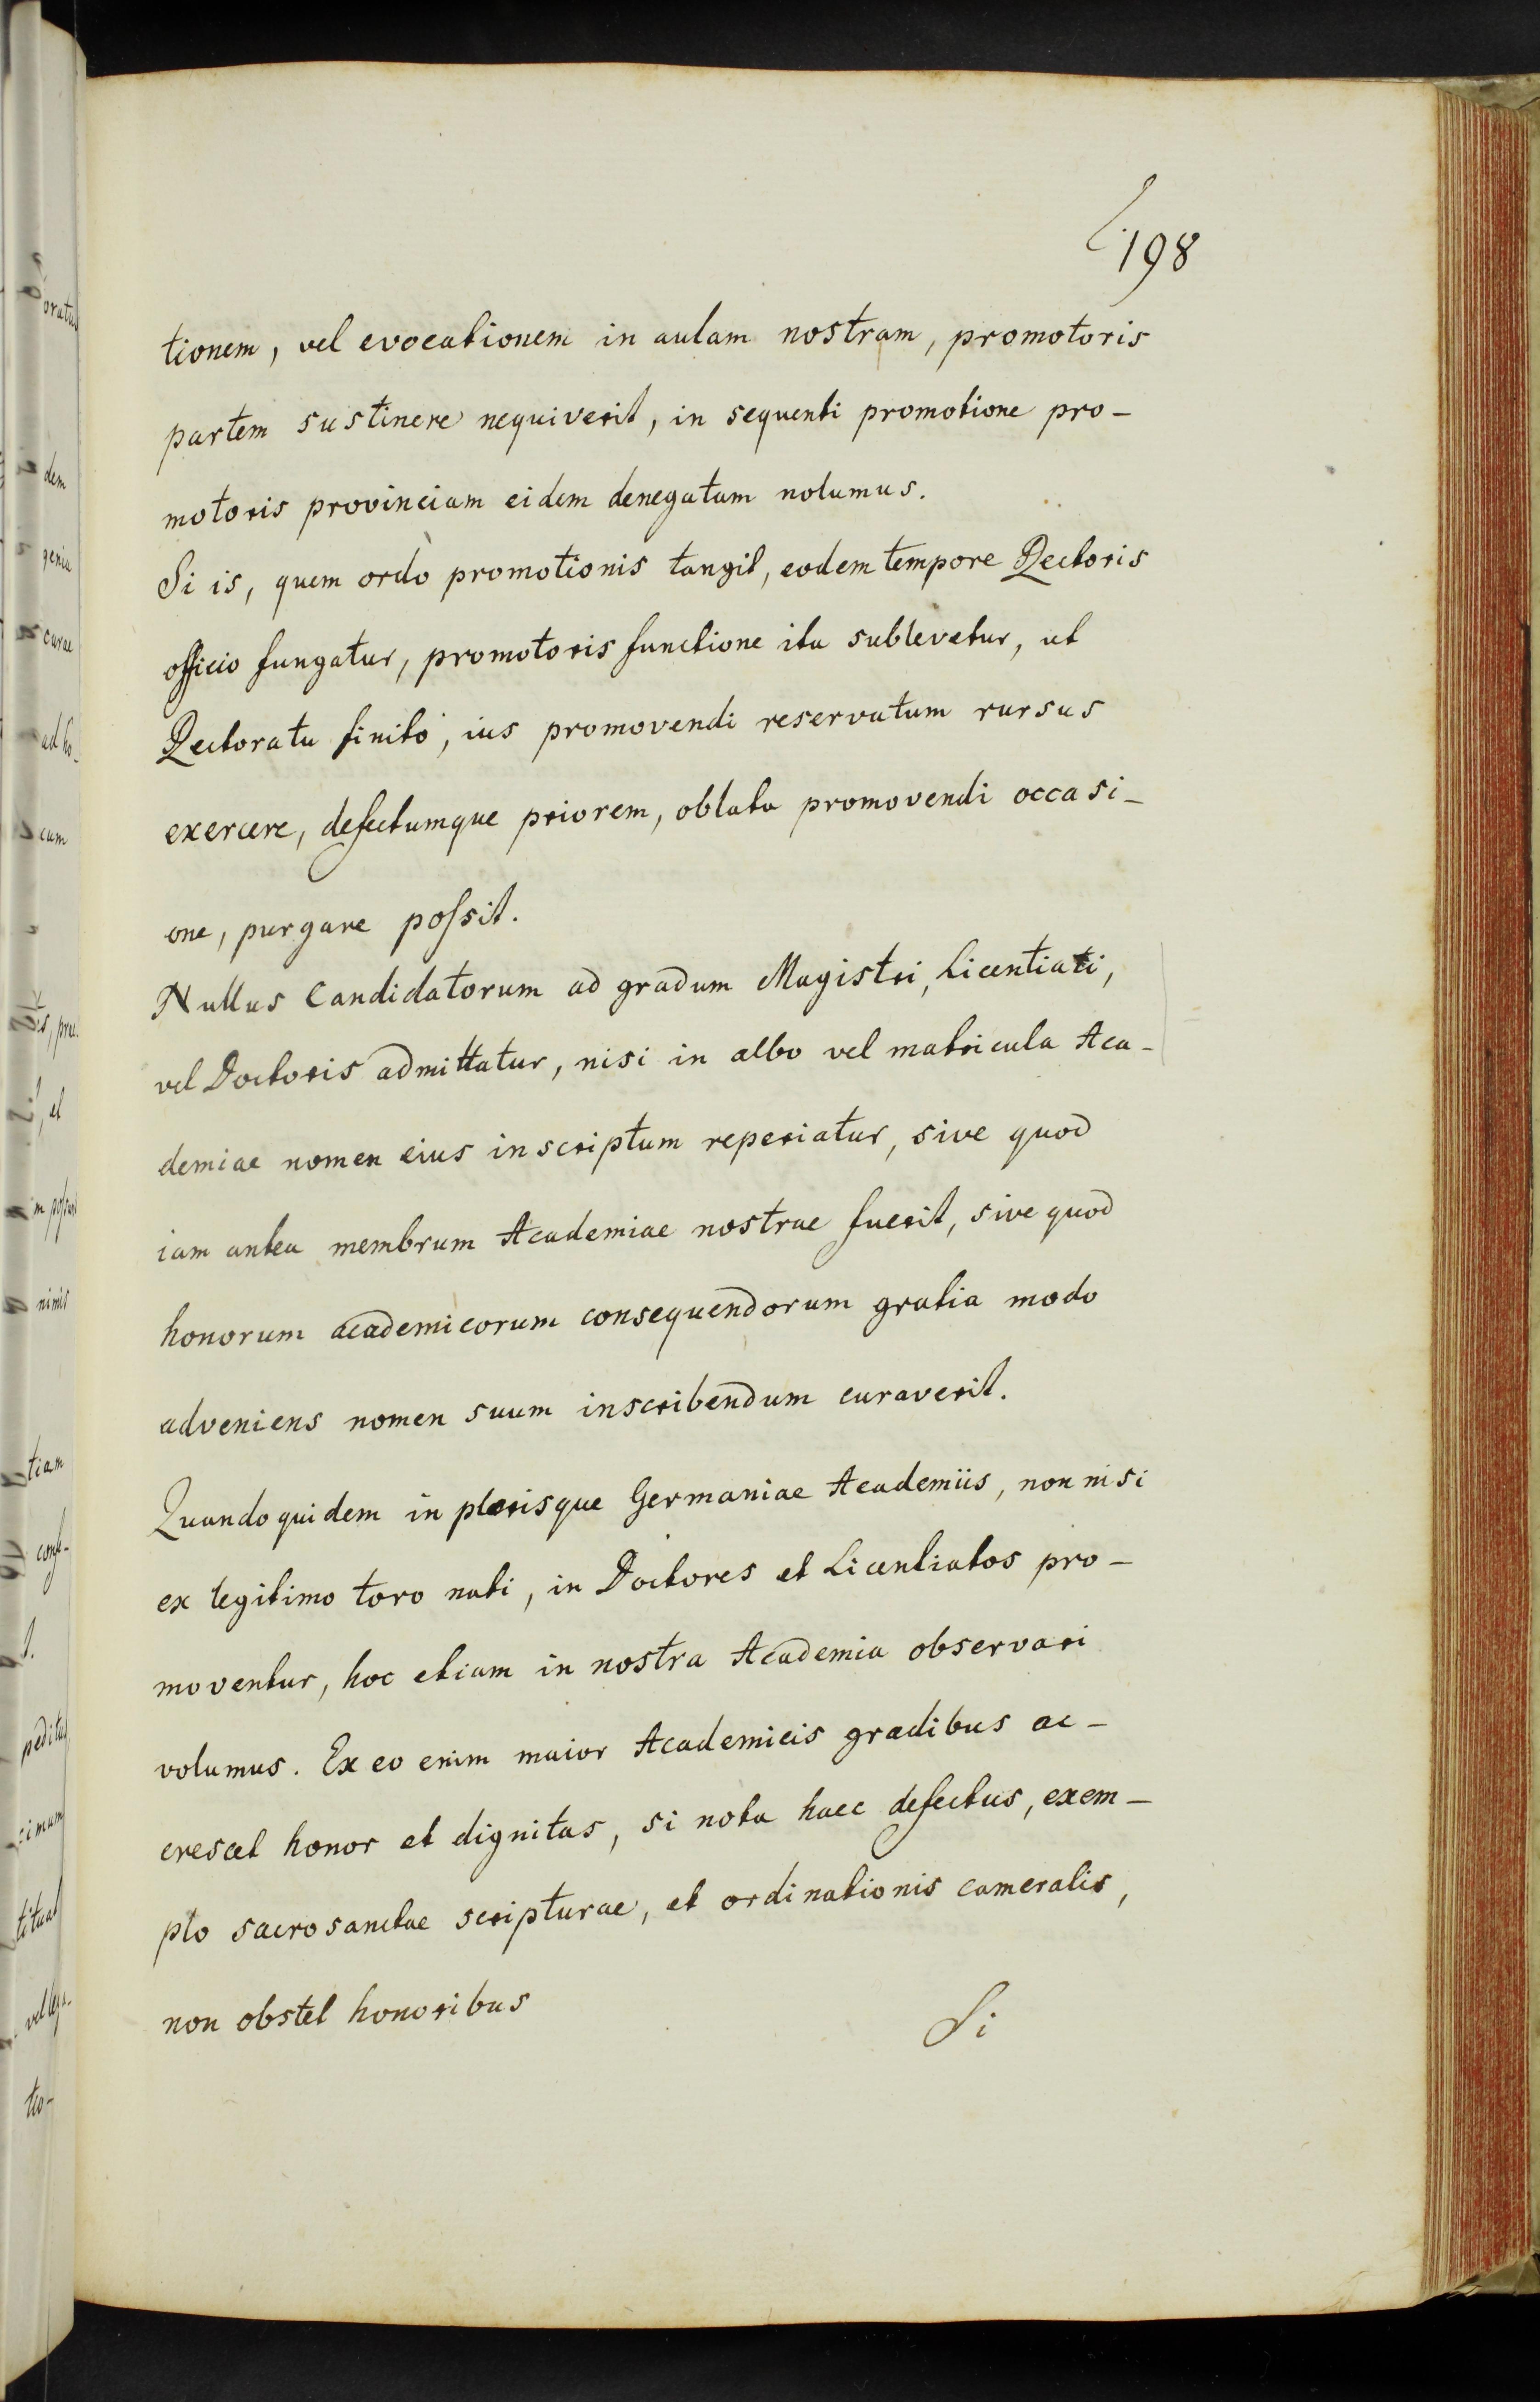 198
tionem, vel evocationem in aulam nostram, promotoris
partem sustinere nequiverit, in sequenti promotione pro-
motoris provinciam eidem denegatam nolumus.
Si is, quem ordo promotionis tangit, eodem tempore Rectoris
officio fungatur, promotoris functione ita sublevetur, ut
Rectoratu finito, ius promovendi reservatum rursus
exercere, defectumque priorem, oblata promovendi occasi-
one, purgare poſsit.
Nullus Candidatorum ad gradum Magistri, Licentiati,
vel Doctoris admittatur, nisi in albo vel matricula Aca-
demiae nomen eius inscriptum reperiatur, sive quod
iam antea membrum Academiae nostrae fuerit, sive quod
honorum academicorum consequendorum gratia modo
adveniens nomen suum inscribendum curaverit.
Quandoquidem in plerisque Germaniae Academiis, non nisi
ex legitimo toro nati, in Doctores et Licentiatos pro-
moventur, hoc etiam in nostra Academia observari
volumus. Ex eo enim maior Academicis gradibus ac-
crescet honor et dignitas, si nota haec defectus, exem-
plo sacrosanctae scripturae, et ordinationis cameralis,
non obstet honoribus
Si